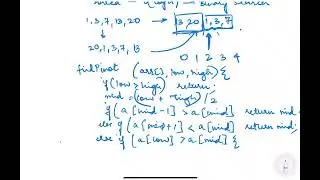 O(logn) — Binary search
1,3,7,13,20 → 13 20 1, 3, 7
20,1,3,7,13
0 1 2 3 4
findPivot (arr[], low, high) {
if (low > high) return;
mid = (low + high) / 2
if (a[mid-1] > a[mid] return mid;
else if (a[mid+1] < a[mid] return mid;
else if (a[low] > a[mid] {